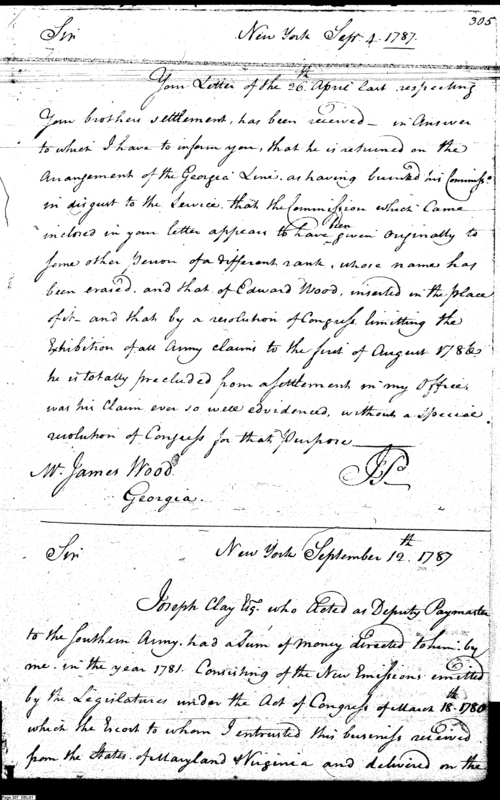 305
Sir New York Sept. 4. 1787.
Your Letter of the 26th April last respecting
Your brothers settlement, has been received — in Answer
to which I have to inform you, that he is returned on the
Arrangement of the Georgia Line. as having burnted his Commisso.
in disgust to the Service. that the Commission which Came
inclosed in your letter appears to have been given Originally to
some other Person of a different rank, whose name has
been erased. and that of Edward Wood, inserted in the place
of it — and that by a resolution of Congress limitting the
Exhibition of all Army claims to the first of August 1786
he is totally precluded from a settlement in my Office,
was his Claim ever so well edvidenced, without a Special
resolution of Congress for that Purpose
Mr. James Wood
Georgia.
Sir New York September 12th. 1787
Joseph Clay Esqr. who Acted as Deputy Paymaster
to the Southern Army. had a Sum of Money directed to him by
me. in the year 1781. Consisting of the New Emissions emitted
by the Legislatures under the Act of Congress of March 18th. 1780
which the Escort to whom I entrusted this business received
from the States of Maryland & Virginia and delivered on the